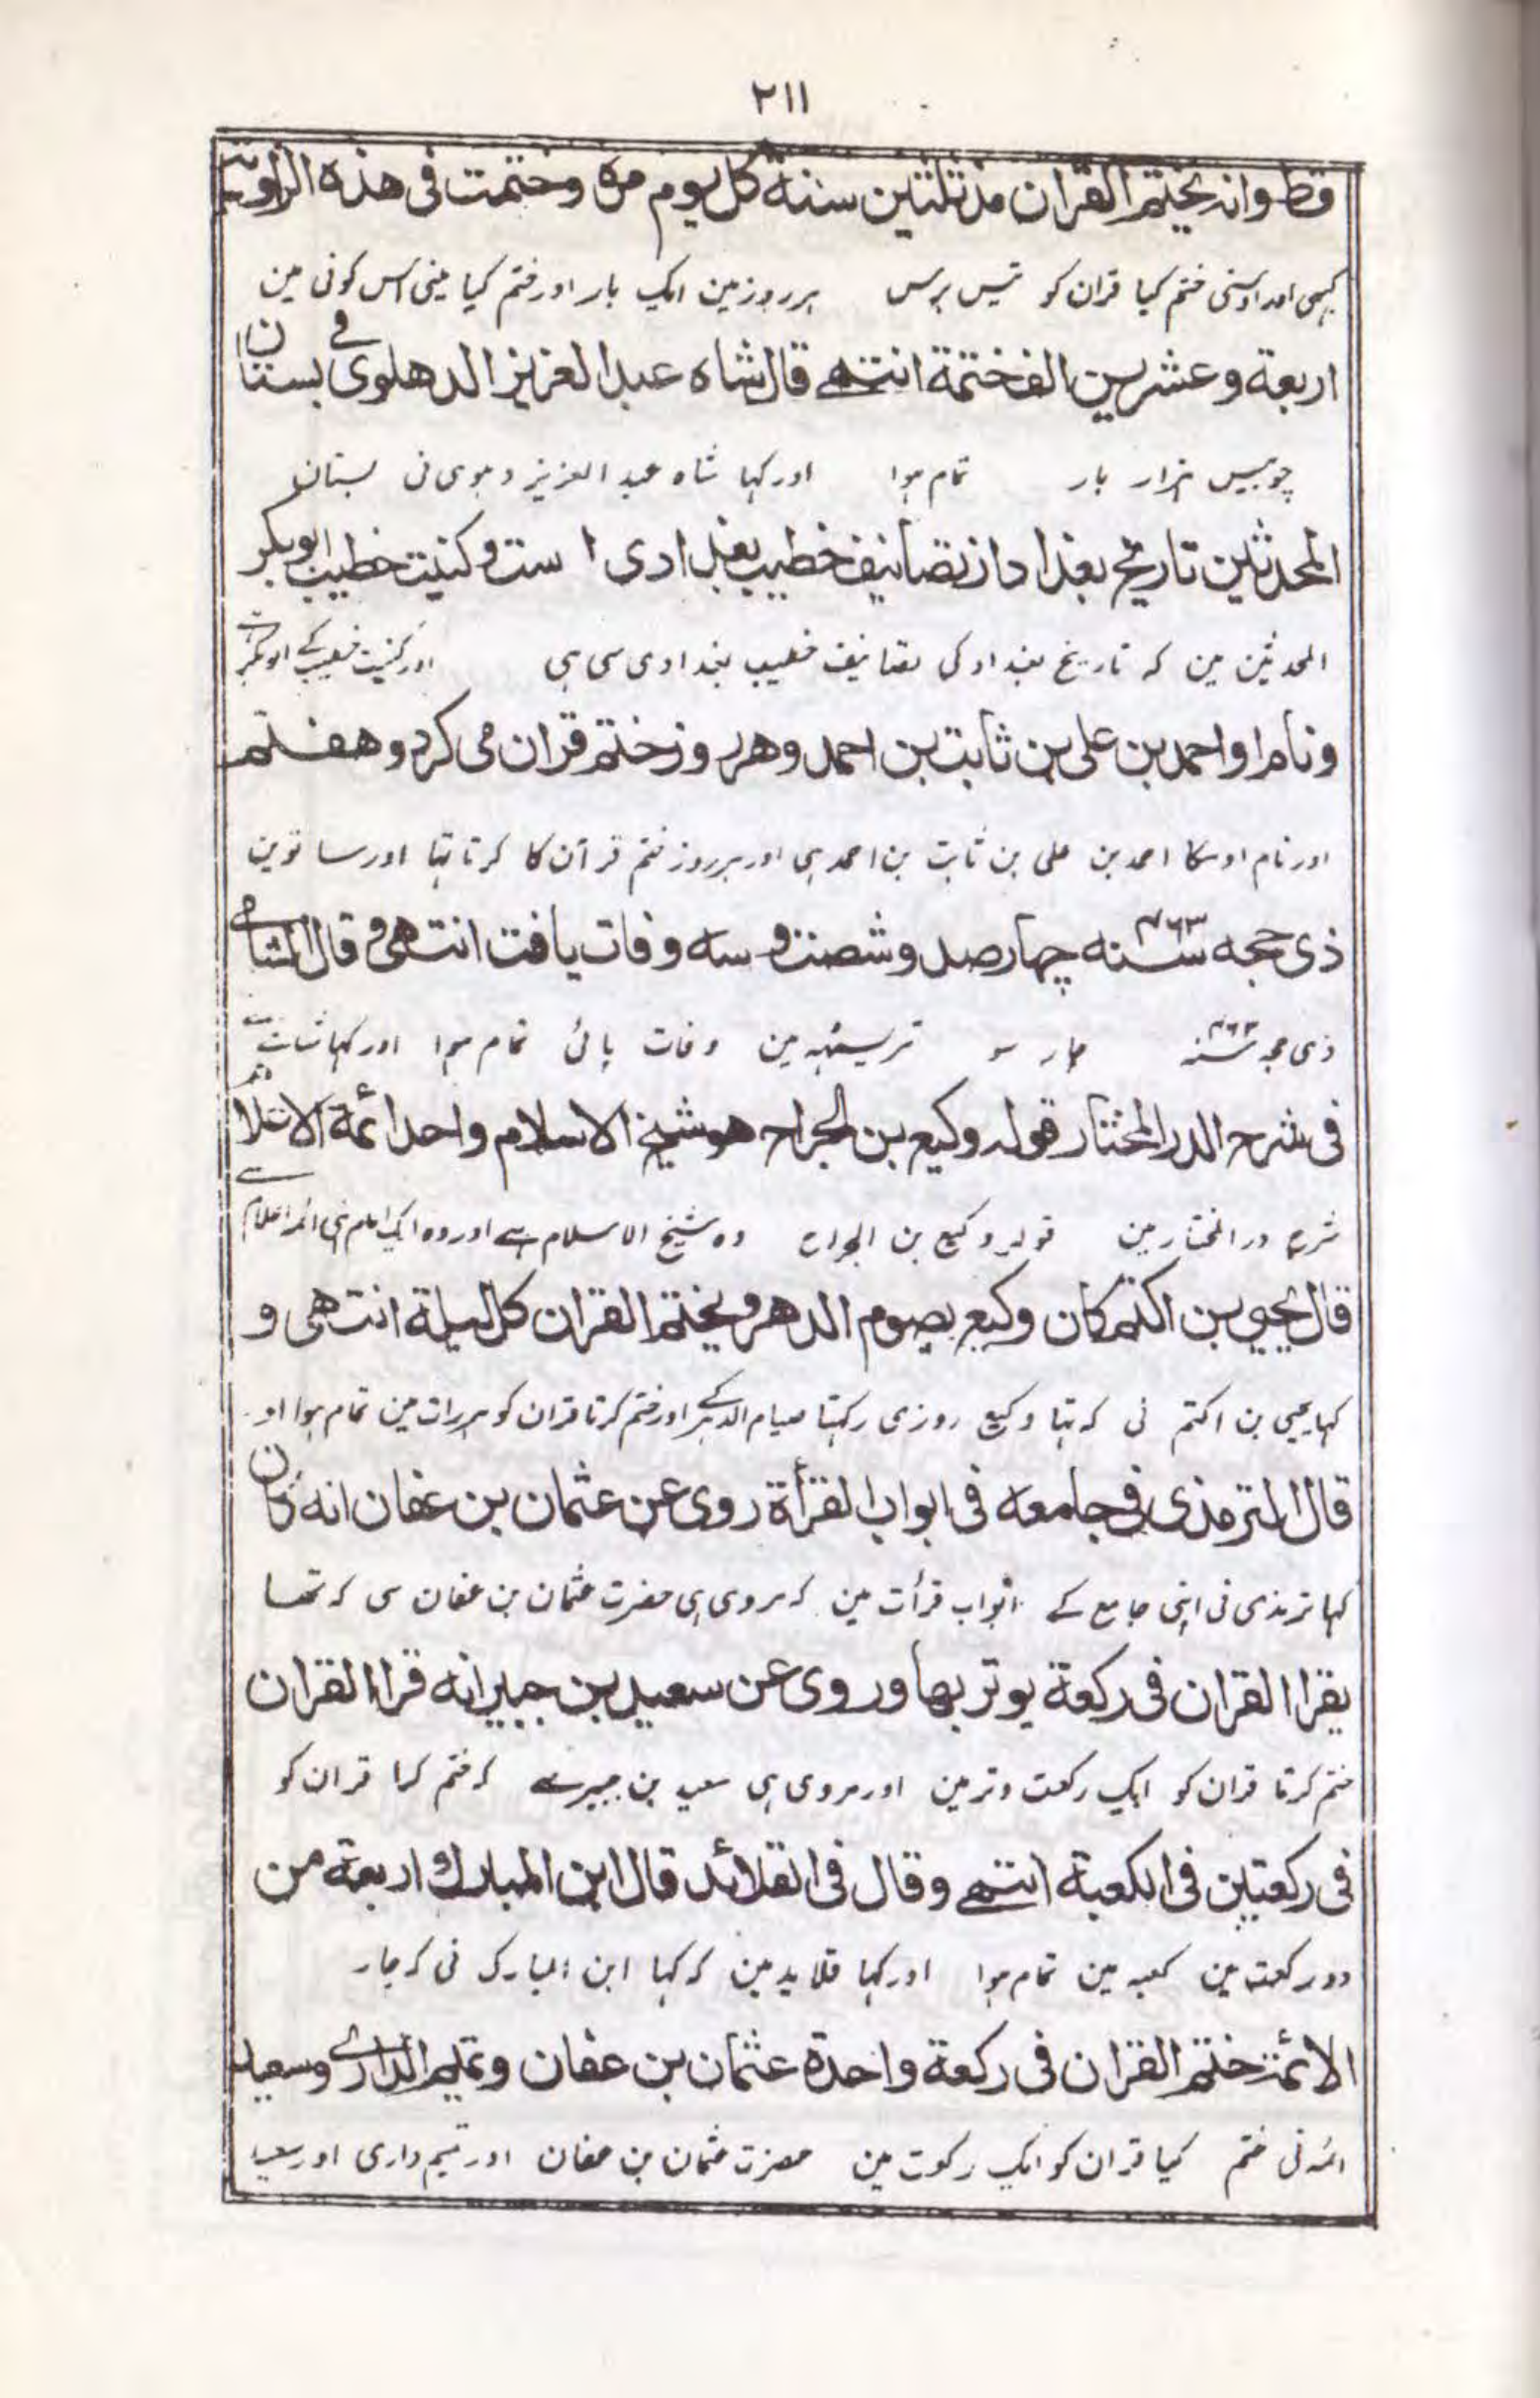 ٢١١
قط وانه يختم القران منذ ثلثين سنة كل يوم مرة وختمت فى هذه الزاوية
کبہی اور اوسنی ختم کیا قران کو تیس برس ہر روز مین ایک بار اور ختم کیا مینی اس کونی مین
اربعة وعشرين الف ختمة انتهے قال شاه عبد العزيز الدهلوى فے بستان
چوبیس ہزار بار تمام ہوا اور کہا شاہ عبد العزیز دہلوی نی بستان
المحدثين تاريخ بغداد از تصانيف خطيب بغدادى است و كنيت خطيب ابو بكر
المحدثین مین کہ تاریخ بغداد کی تصانیف خطیب بغدادی سی ہی اور کنیت خطیب کے ابو بکر
ونام او احمد بن على بن ثابت بن احمد وهر روز ختم قران مى كرد و هفتم
اور نام اوسکا احمد بن علی بن ثابت بن احمد ہی اور ہر روز ختم قرآن کا کرتا تہا اور ساتوین
ذى حجه سنه ٤٦٣ چهار صد و شصت و سه وفات يافت انتهى و قال الشامے
ذی حجہ سنہ ٤٦٣ چار سو تریسٹہہ مین وفات پائی تمام ہوا اور کہا شامی نے
فى شرح الدر المختار قوله وكيع بن الجراح هو شيخ الاسلام واحد ائمة الاعلا
شرح در المختار مین قولہ وکیع بن الجراح وہ شیخ الاسلام ہے اور وہ ایک امام ہی ائمہ اعلام سے
قال يحيى بن اكثم كان وكيع يصوم الدهر ويختم القران كل ليلة انتهى و
کہا یحیی بن اکثم نی کہ تہا وکیع روزی رکہتا صیام الدہر کے اور ختم کرتا قران کو ہر رات مین تمام ہوا او
قال الترمذى فى جامعه فى ابواب القرأة روى عن عثمان بن عفان انه كان
کہا ترمذی نی اپنی جامع کے ابواب قرأت مین کہ مروی ہی حضرت عثمان بن عفان سی کہ تھا
يقرا القران فى ركعة يوتر بها وروى عن سعيد بن جبير انه قرا القران
ختم کرتا قران کو ایک رکعت وتر مین اور مروی ہی سعید بن جبیر سے کہ ختم کیا قران کو
فى ركعتين فى الكعبة انتهے وقال فى القلائد قال ابن المبارك اربعة من
دو رکعت مین کعبہ مین تمام ہوا اور کہا قلاید مین کہ کہا ابن المبارک نی کہ چار
الائمة ختم القران فى ركعة واحدة عثمان بن عفان وتميم الدارے وسعيد
ائمہ نی ختم کیا قران کو ایک رکعت مین حضرت عثمان بن عفان اور تمیم داری اور سعید